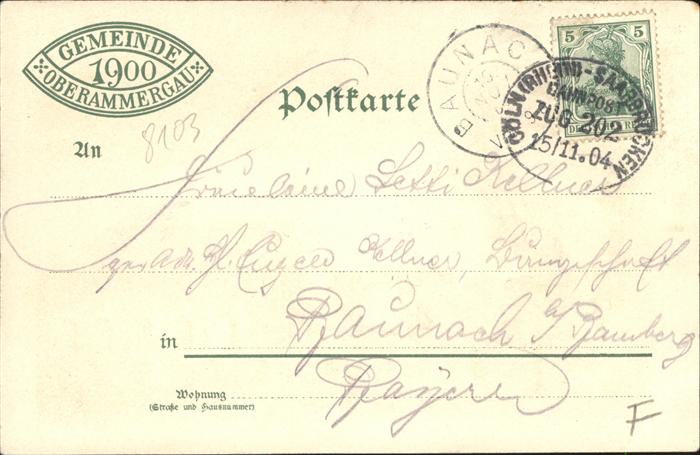 GEMEINDE
1900
OBERAMMERGAU
Postkarte
BAUNACH
5 5
CÖLN (RHEIN)-SAARBRÜCKEN
BAHNPOST
ZUG 202
15/11.04.
8103
An
Fräuleine Letti Kellner
Adr. H. Eugen Kellner,
in Baunach b/ Bamberg
Bayern
Wohnung
(Straße und Hausnummer)
F